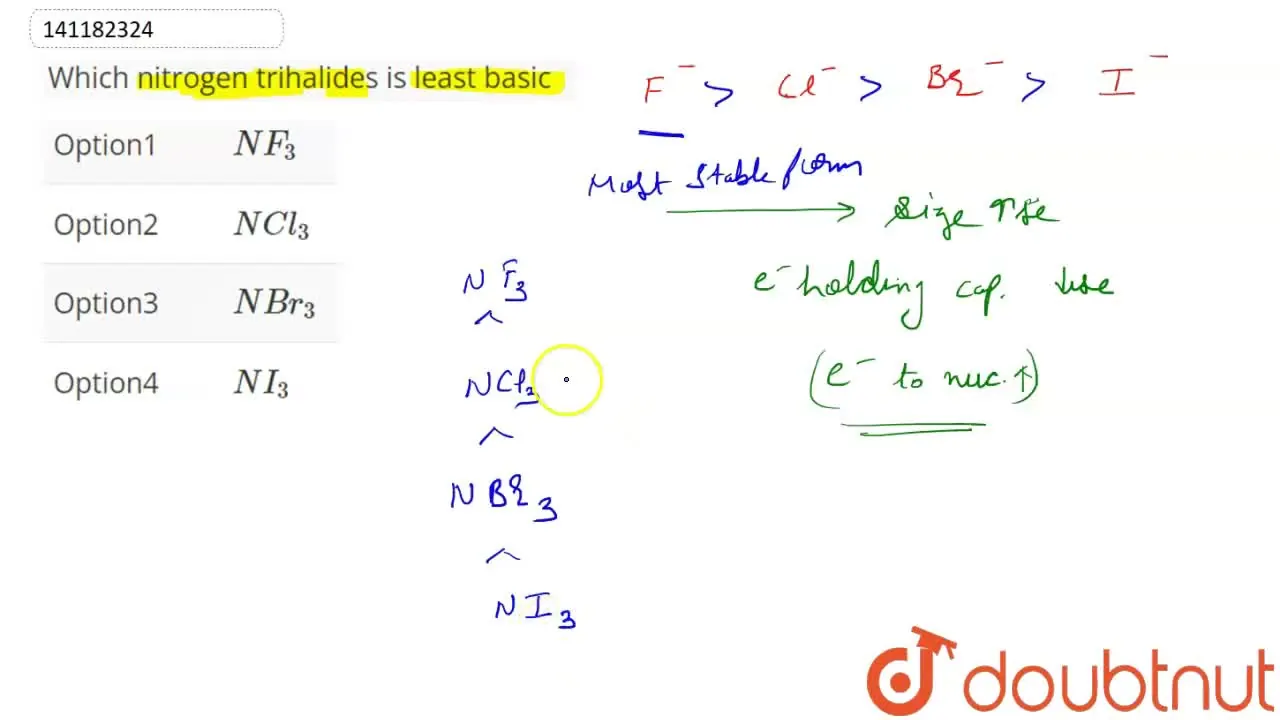 141182324
Which nitrogen trihalides is least basic
Option1 NF₃
Option2 NCl₃
Option3 NBr₃
Option4 NI₃
F⁻ > Cl⁻ > Br⁻ > I⁻
Most stable form
size ↑se
e⁻ holding cap. ↓se
(e⁻ to nuc. ↑)
NF₃
^
NCl₃
^
NBr₃
^
NI₃
doubtnut